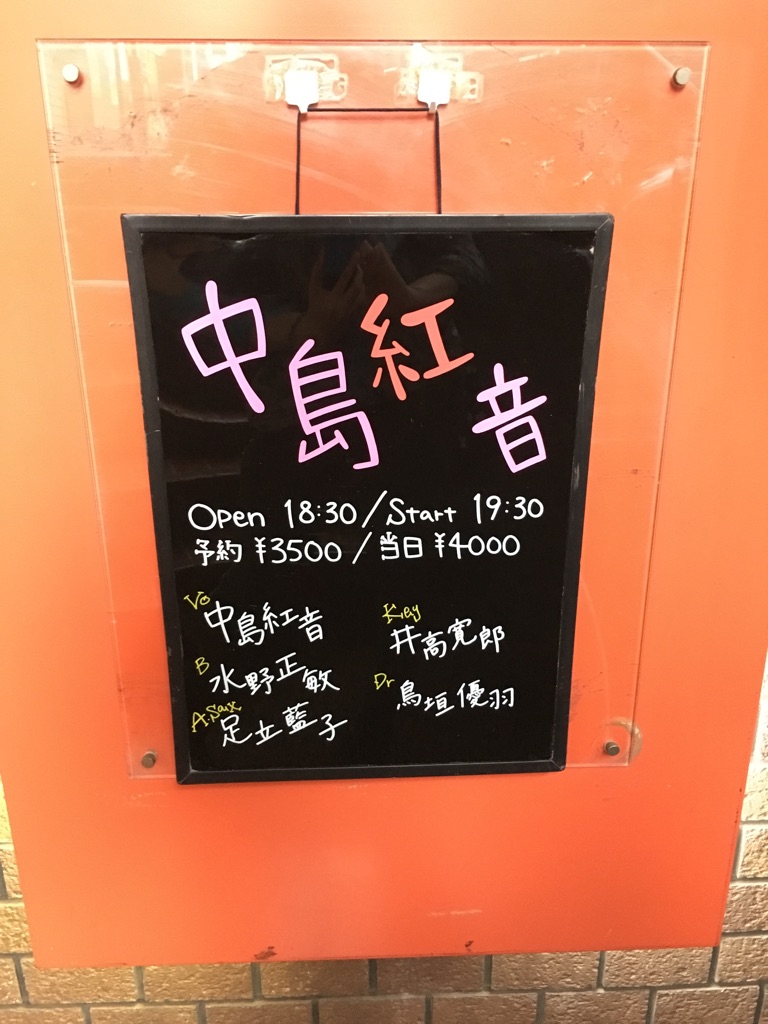 中島紅音
Open 18:30/Start 19:30
予約 ¥3500/当日 ¥4000
Vo 中島紅音
Key 井高寛郎
B 水野正敏
Dr 鳥垣優羽
A.Sax 足立藍子